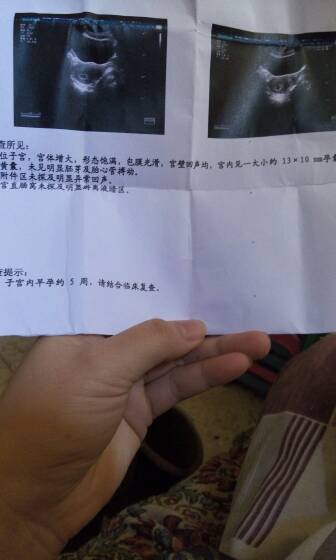 查所见:
位子宫，宫体增大，形态饱满，包膜光滑，宫壁回声均，宫内见一大小约 13×10 mm孕囊
黄囊，未见明显胚芽及胎心管搏动。
附件区未探及明显异常回声。
宫直肠窝未探及明显游离液暗区。
查提示:
子宫内早孕约 5 周，请结合临床复查。